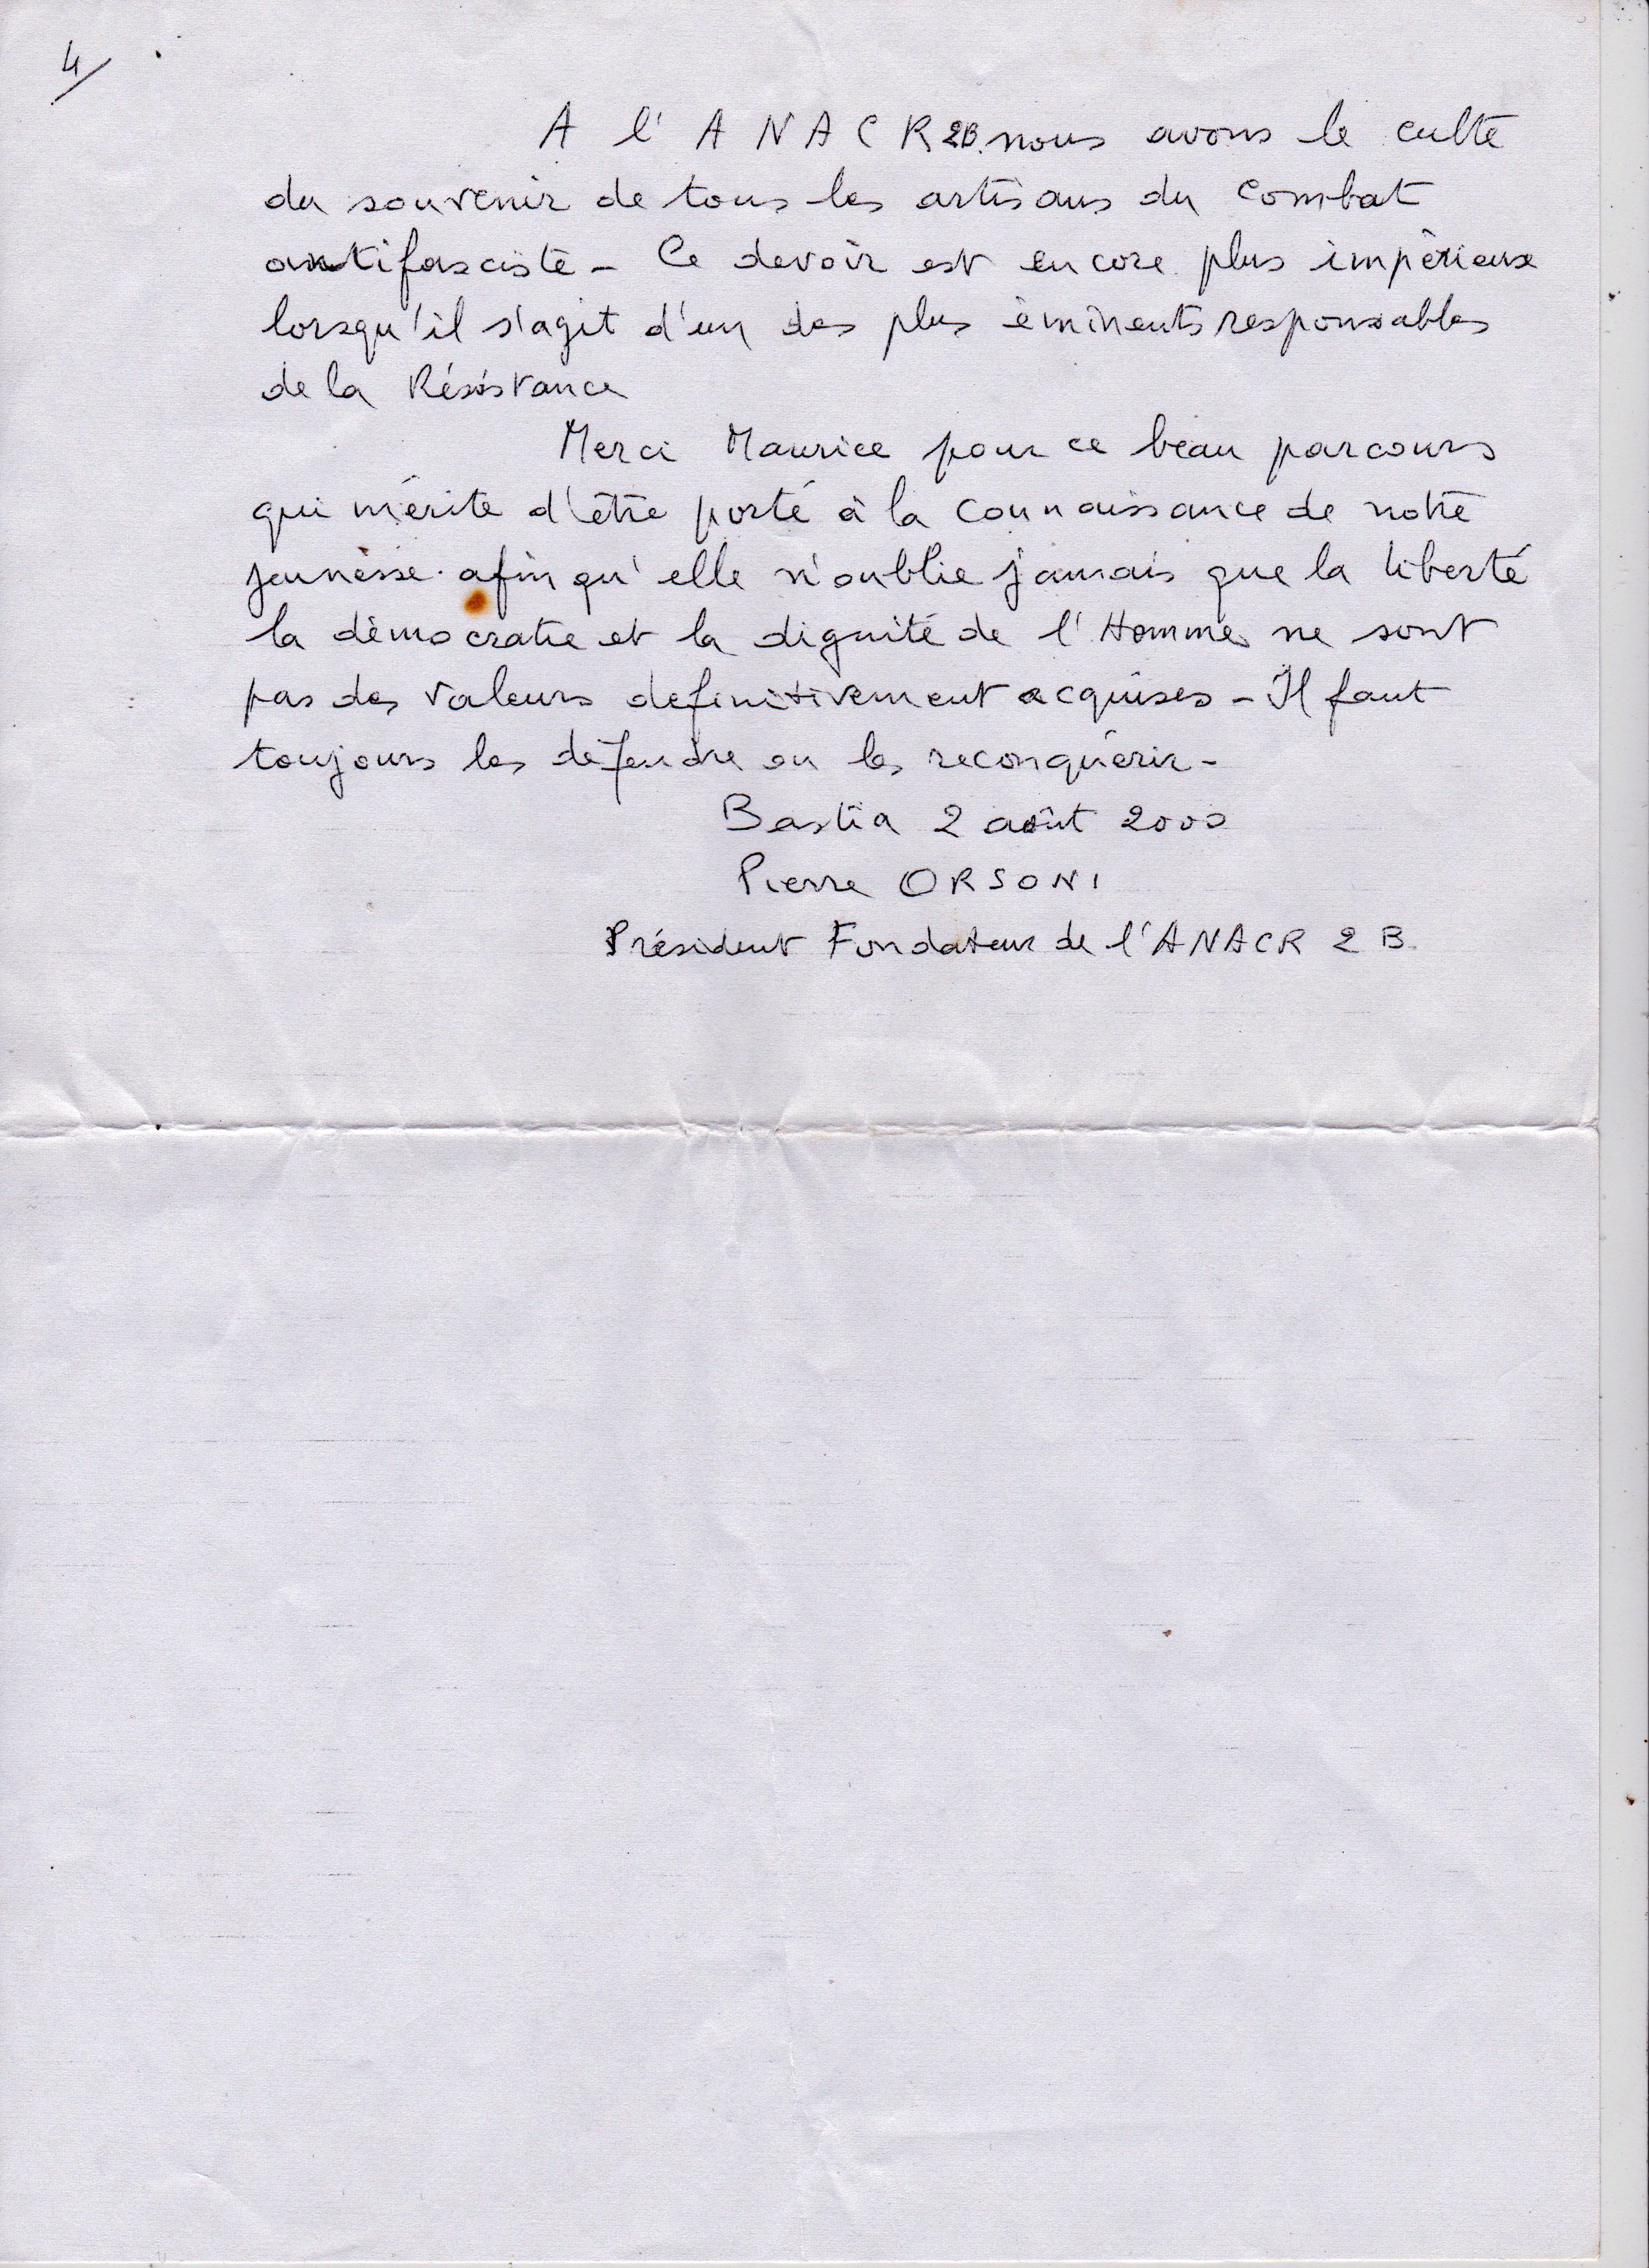 4/
A l'ANACR 2B. nous avons le culte
du souvenir de tous les artisans du combat
antifasciste - Ce devoir est encore plus impérieux
lorsqu'il s'agit d'un des plus éminents responsables
de la Résistance
Merci Maurice pour ce beau parcours
qui mérite d'être porté à la connaissance de notre
jeunesse afin qu'elle n'oublie jamais que la liberté
la démocratie et la dignité de l'Homme ne sont
pas des valeurs definitivement acquises - Il faut
toujours les défendre ou les reconquérir -
Bastia 2 août 2000
Pierre ORSONI
Président Fondateur de l'ANACR 2 B.